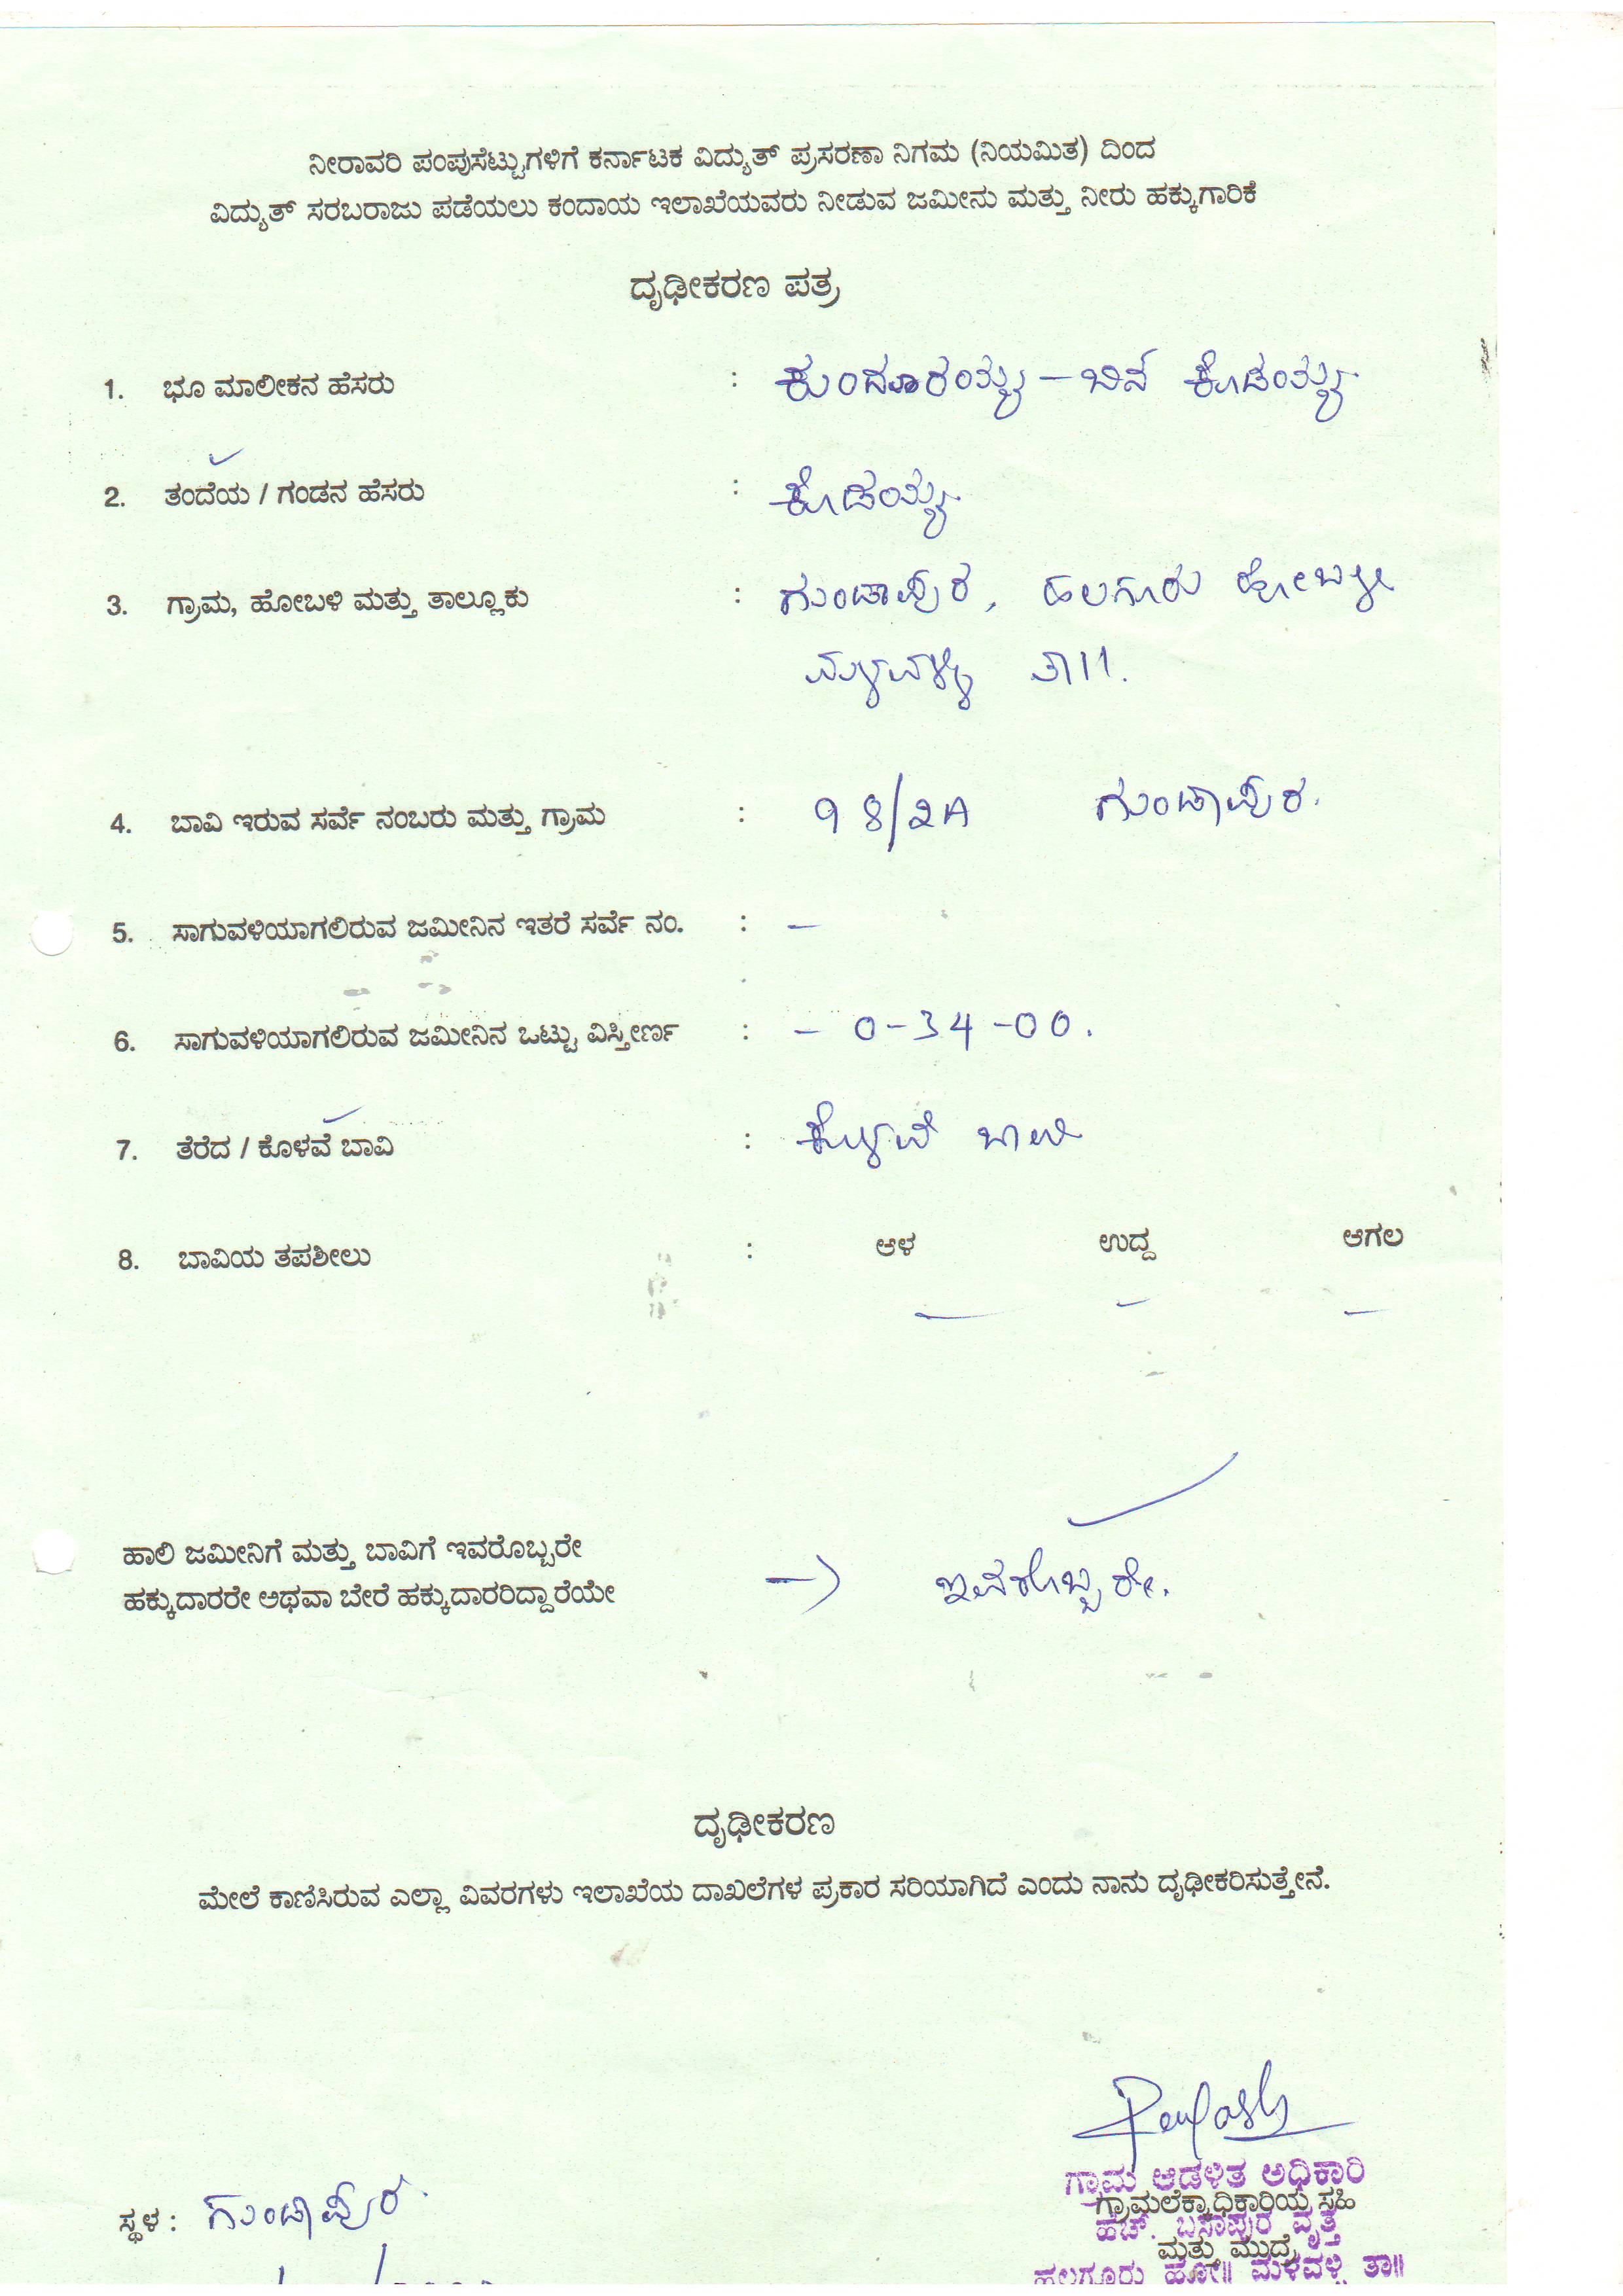 ನೀರಾವರಿ ಪಂಪುಸೆಟ್ಟುಗಳಿಗೆ ಕರ್ನಾಟಕ ವಿದ್ಯುತ್ ಪ್ರಸರಣಾ ನಿಗಮ (ನಿಯಮಿತ) ದಿಂದ
ವಿದ್ಯುತ್ ಸರಬರಾಜು ಪಡೆಯಲು ಕಂದಾಯ ಇಲಾಖೆಯವರು ನೀಡುವ ಜಮೀನು ಮತ್ತು ನೀರು ಹಕ್ಕುಗಾರಿಕೆ
ದೃಢೀಕರಣ ಪತ್ರ
1. ಭೂ ಮಾಲೀಕನ ಹೆಸರು : ಕುಂದೂರಯ್ಯ - ಬಿನ್ ಕೆಂಡಯ್ಯ
2. ತಂದೆಯ / ಗಂಡನ ಹೆಸರು : ಕೆಂಡಯ್ಯ
3. ಗ್ರಾಮ, ಹೋಬಳಿ ಮತ್ತು ತಾಲ್ಲೂಕು : ಗುಂಡಾಪುರ, ಹಲಗೂರು ಹೋಬಳಿ
ಮಳವಳ್ಳಿ ತಾ||.
4. ಬಾವಿ ಇರುವ ಸರ್ವೆ ನಂಬರು ಮತ್ತು ಗ್ರಾಮ : 98/2A ಗುಂಡಾಪುರ.
5. ಸಾಗುವಳಿಯಾಗಲಿರುವ ಜಮೀನಿನ ಇತರೆ ಸರ್ವೆ ನಂ. : -
6. ಸಾಗುವಳಿಯಾಗಲಿರುವ ಜಮೀನಿನ ಒಟ್ಟು ವಿಸ್ತೀರ್ಣ : - 0-34-00.
7. ತೆರೆದ / ಕೊಳವೆ ಬಾವಿ : ಕೊಳವೆ ಬಾವಿ
8. ಬಾವಿಯ ತಪಶೀಲು : ಆಳ ಉದ್ದ ಆಗಲ
- - -
ಹಾಲಿ ಜಮೀನಿಗೆ ಮತ್ತು ಬಾವಿಗೆ ಇವರೊಬ್ಬರೇ
ಹಕ್ಕುದಾರರೇ ಅಥವಾ ಬೇರೆ ಹಕ್ಕುದಾರರಿದ್ದಾರೆಯೇ → ಇವರೊಬ್ಬರೇ.
ದೃಢೀಕರಣ
ಮೇಲೆ ಕಾಣಿಸಿರುವ ಎಲ್ಲಾ ವಿವರಗಳು ಇಲಾಖೆಯ ದಾಖಲೆಗಳ ಪ್ರಕಾರ ಸರಿಯಾಗಿದೆ ಎಂದು ನಾನು ದೃಢೀಕರಿಸುತ್ತೇನೆ.
ಗ್ರಾಮ ಆಡಳಿತ ಅಧಿಕಾರಿ
ಗ್ರಾಮಲೆಕ್ಕಾಧಿಕಾರಿಯ ಸಹಿ
ಸ್ಥಳ : ಗುಂಡಾಪುರ
ಹೆಚ್. ಬಸಾಪುರ ವೃತ್ತ
ಮತ್ತು ಮುದ್ರೆ
ಹಲಗೂರು ಹೋ|| ಮಳವಳ್ಳಿ ತಾ||